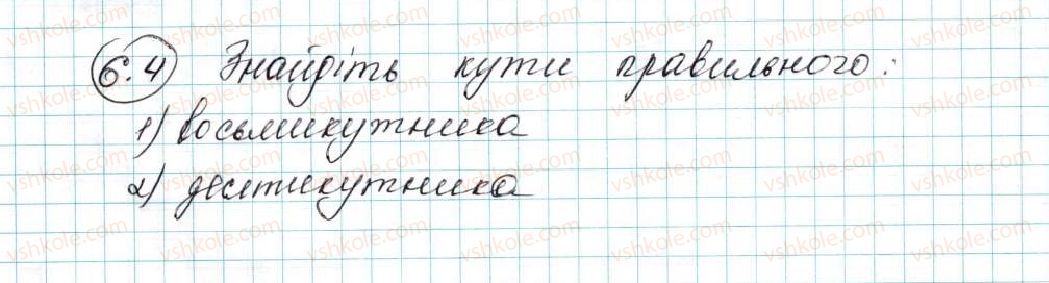 6.4 Знайдіть кути правильного:
1) восьмикутника
2) десятикутника
vshkole.com